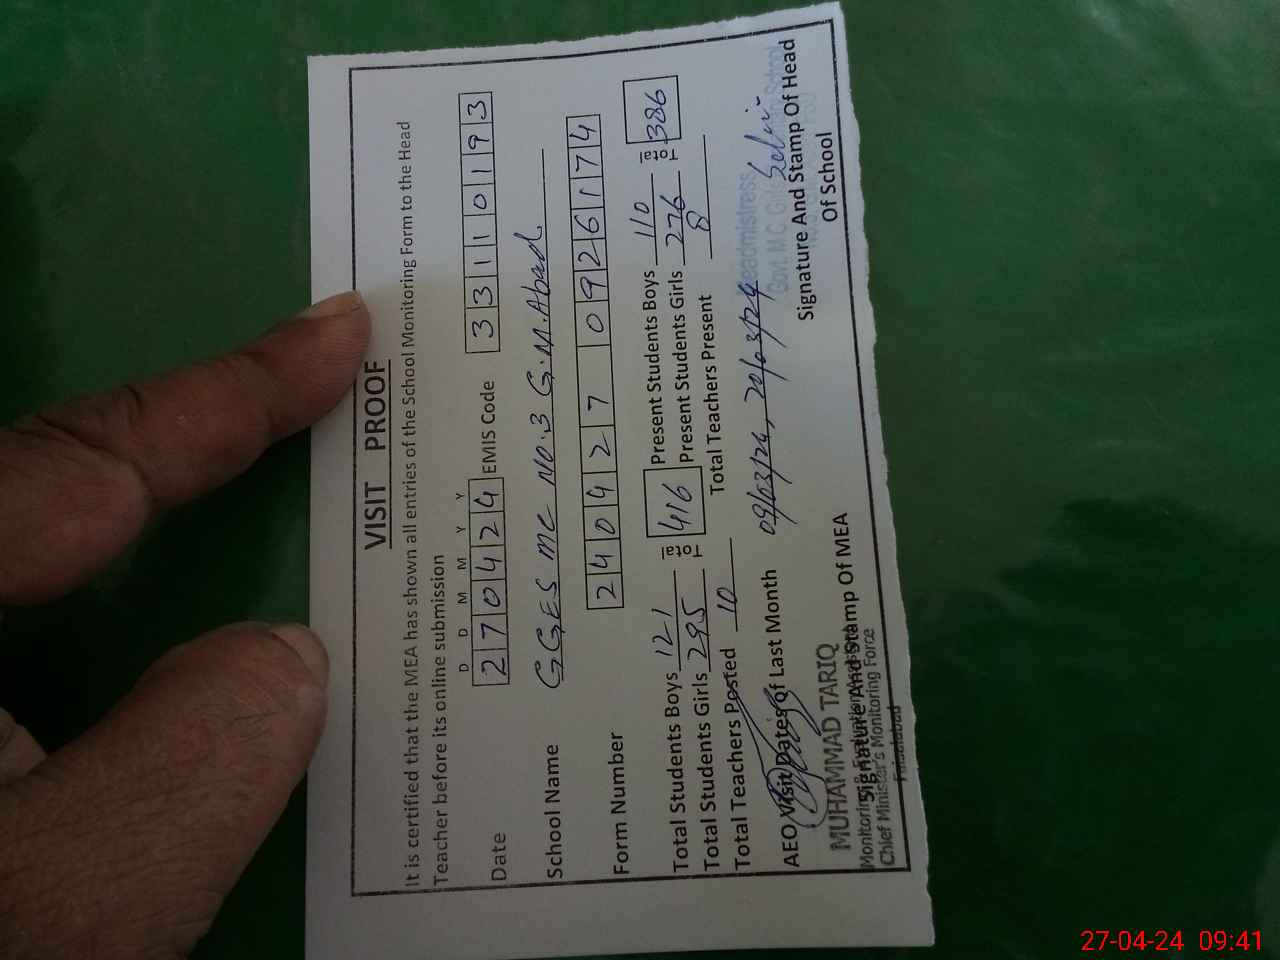 VISIT PROOF
It is certified that the MEA has shown all entries of the School Monitoring Form to the Head
Teacher before its online submission
D D M M Y Y
Date 270424 EMIS Code 33110193
School Name GGES MC NO.3 G.M.Abad
Form Number 240427 0926174
Total Students Boys 121 Total 416 Present Students Boys 110 Total 386
Total Students Girls 295 Present Students Girls 276
Total Teachers Posted 10 Total Teachers Present 8
AEO Visit Dates of Last Month 09/03/24, 20/03/24
Headmistress
Govt. M.C. Girls School
MUHAMMAD TARIQ
Monitoring & Evaluation
Chief Minister's Monitoring Force
Faisalabad
Signature And Stamp Of MEA
Signature And Stamp Of Head
Of School
27-04-24 09:41